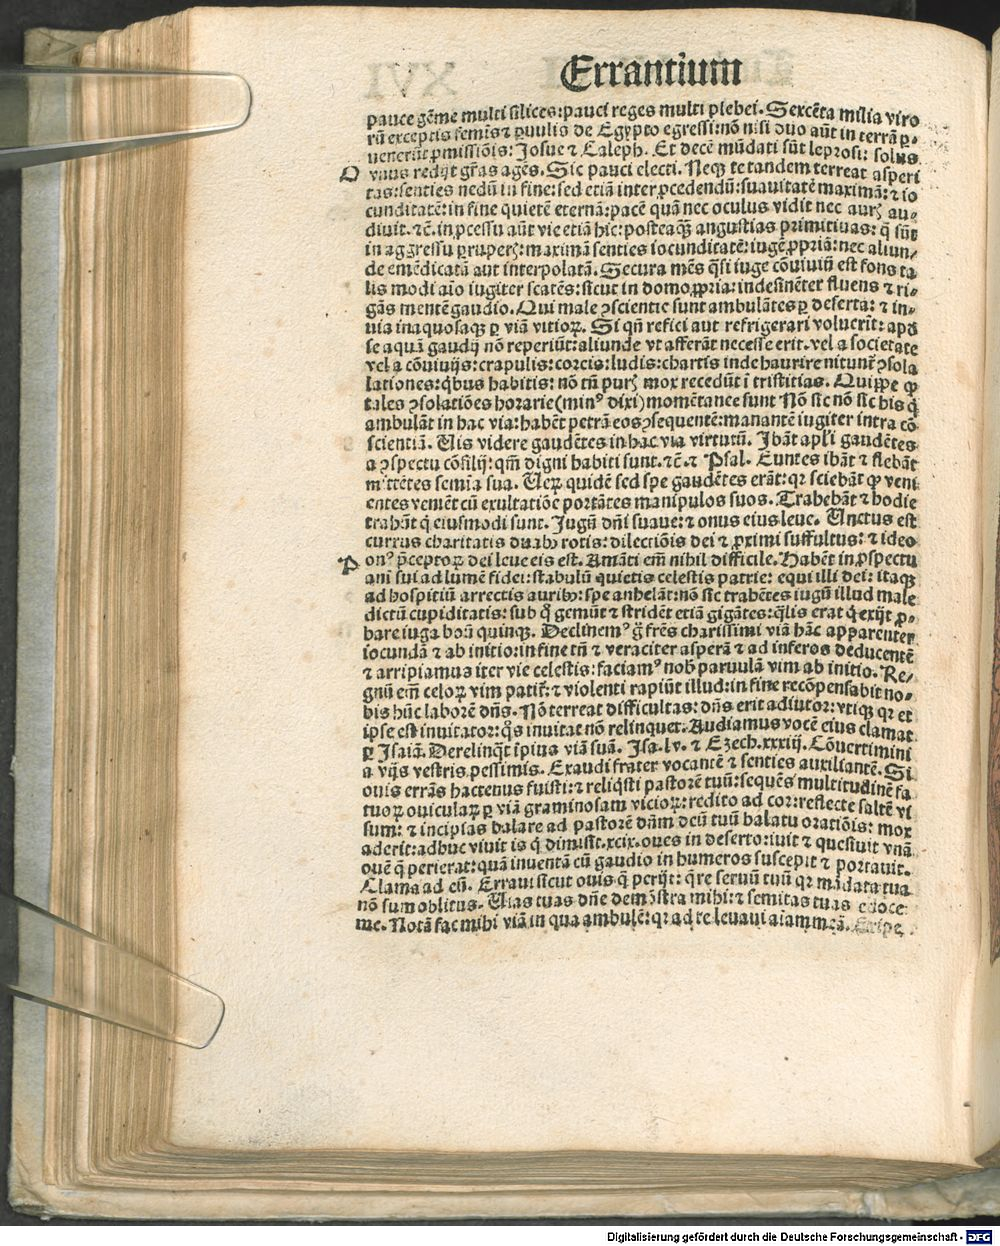 Errantium
pauce gēme multi silices: pauci reges multi plebei. Sexcēta milia viro
rū exceptis femīs ⁊ ꝑuulis de Egypto egressi: nō nisi duo aūt in terrā ꝓ-
uenerūt ꝓmissiōis: Josue ⁊ Caleph. Et decē mūdati sūt leprosi: solus
O vnus redijt gr̄as agēs. Sic pauci electi. Neqꝫ te tandem terreat asperi
tas: senties nedū in fine: sed etiā inter ꝓcedendū: suauitatē maximā: ⁊ io
cunditatē: in fine quietē eternā: pacē quā nec oculus vidit nec aurꝭ au-
diuit. ⁊c̄. in ꝓcessu aūt vie etiā hic: posteaqꝫ̄ angustias primitiuas: q̄ sūt
in aggressu ꝑruperꝭ: maximā senties iocunditatē: iugē ꝓpriā: nec aliun-
de emēdicatā aut interpolatā. Secura mēs q̄si iuge cōuiuiū est fons ta
lis modi aīo iugiter scatēs: sicut in domo ꝓpria: indesinēter fluens ⁊ ri-
gās mentē gaudio. Qui male ꝯscientie sunt ambulātes ꝑ deserta: ⁊ in-
uia inaquosaqꝫ ꝑ viā vitioꝝ. Si qn̄ refici aut refrigerari voluerīt: apd
se aquā gaudij nō reperiūt: aliunde vt afferāt necesse erit. vel a societate
vel a cōuiuijs: crapulis: coreis: ludis: chartis inde haurire nitunt̄ ꝯsola
lationes: qbus habitis: nō tn̄ purꝭ mox recedūt ī tristitias. Quippe ꝙ
tales ꝯsolatiōes horarie (minꝰ dixi) momētanee sunt Nō sic nō sic his q̄
ambulāt in hac via: habēt petrā eos ꝯsequentē: manantē iugiter intra cō
scientiā. Uis videre gaudētes in hac via virtutū. Jbāt apl'i gaudētes
a ꝯspectu cōsilij: qm̄ digni habiti sunt. ⁊c̄. ⁊ Psal. Euntes ibāt ⁊ flebāt
mittētes semia sua. Ueꝝ quidē sed spe gaudētes erāt: qr sciebāt ꝙ veni
entes veniēt cū exultatiōe portātes manipulos suos. Trahebāt ⁊ hodie
trahāt q̄ eiusmodi sunt. Jugū dn̄i suaue: ⁊ onus eius leue. Unctus est
currus charitatis duabꝫ rotis: dilectiōis dei ⁊ ꝓximi suffultus: ⁊ ideo
P onꝰ p̄ceptoꝝ dei leue eis est. Amāti em̄ nihil difficile. Habēt in ꝓspectu
ani sui ad lumē fidei: stabulū quietis celestis patrie: equi illi dei: itaqꝫ
ad hospitiū arrectis auribꝫ: spe anhelāt: nō sic trahētes iugū illud male
dictū cupiditatis: sub q̄ gemūt ⁊ stridēt etiā gigātes: q̄lis erat q̄ exijt ꝓ-
bare iuga boū quinqꝫ. Declinemꝰ ḡ fr̄es charissimi viā hāc apparenter
iocundā ⁊ ab initio: in fine tn̄ ⁊ veraciter asperā ⁊ ad inferos deducentē
⁊ arripiamus iter vie celestis: faciamꝰ nob̄ paruulā vim ab initio. Re-
gnū em̄ celoꝝ vim patit̄: ⁊ violenti rapiūt illud: in fine recōpensabit no-
bis hūc laborē dn̄s. Nō terreat difficultas: dn̄s erit adiutor: vtiqꝫ qr et
ipse est inuitator: q̄s inuitat nō relinquet. Audiamus vocē eius clamāt
ꝑ Jsaiā. Derelinqt īpius viā suā. Jsa. lv. ⁊ Ezech. xxxiij. Cōuertimini
a vijs vestris pessimis. Exaudi frater vocantē ⁊ senties auxiliantē. Si
ouis errās hactenus fuisti: ⁊ reliqsti pastorē tuū: sequēs multitudinē fa
tuoꝝ ouiculaꝝ ꝑ viā graminosam vicioꝝ: redito ad cor: reflecte saltē vi
sum: ⁊ incipias balare ad pastorē dn̄m deū tuū balatu oratiōis: mox
aderit: adhuc viuit is q̄ dimisit. xcix. oues in deserto: iuit ⁊ quesiuit vnā
ouē q̄ perierat: quā inuentā cū gaudio in humeros suscepit ⁊ portauit.
Clama ad eū. Erraui sicut ouis q̄ perijt: q̄re seruū tuū qr mādata tua
nō sum oblitus. Uias tuas dn̄e demōstra mihi: ⁊ semitas tuas edoce
me. Notā fac mihi viā in qua ambulē: qr ad te leuaui aīam meā. Eripe
Digitalisierung gefördert durch die Deutsche Forschungsgemeinschaft - DFG